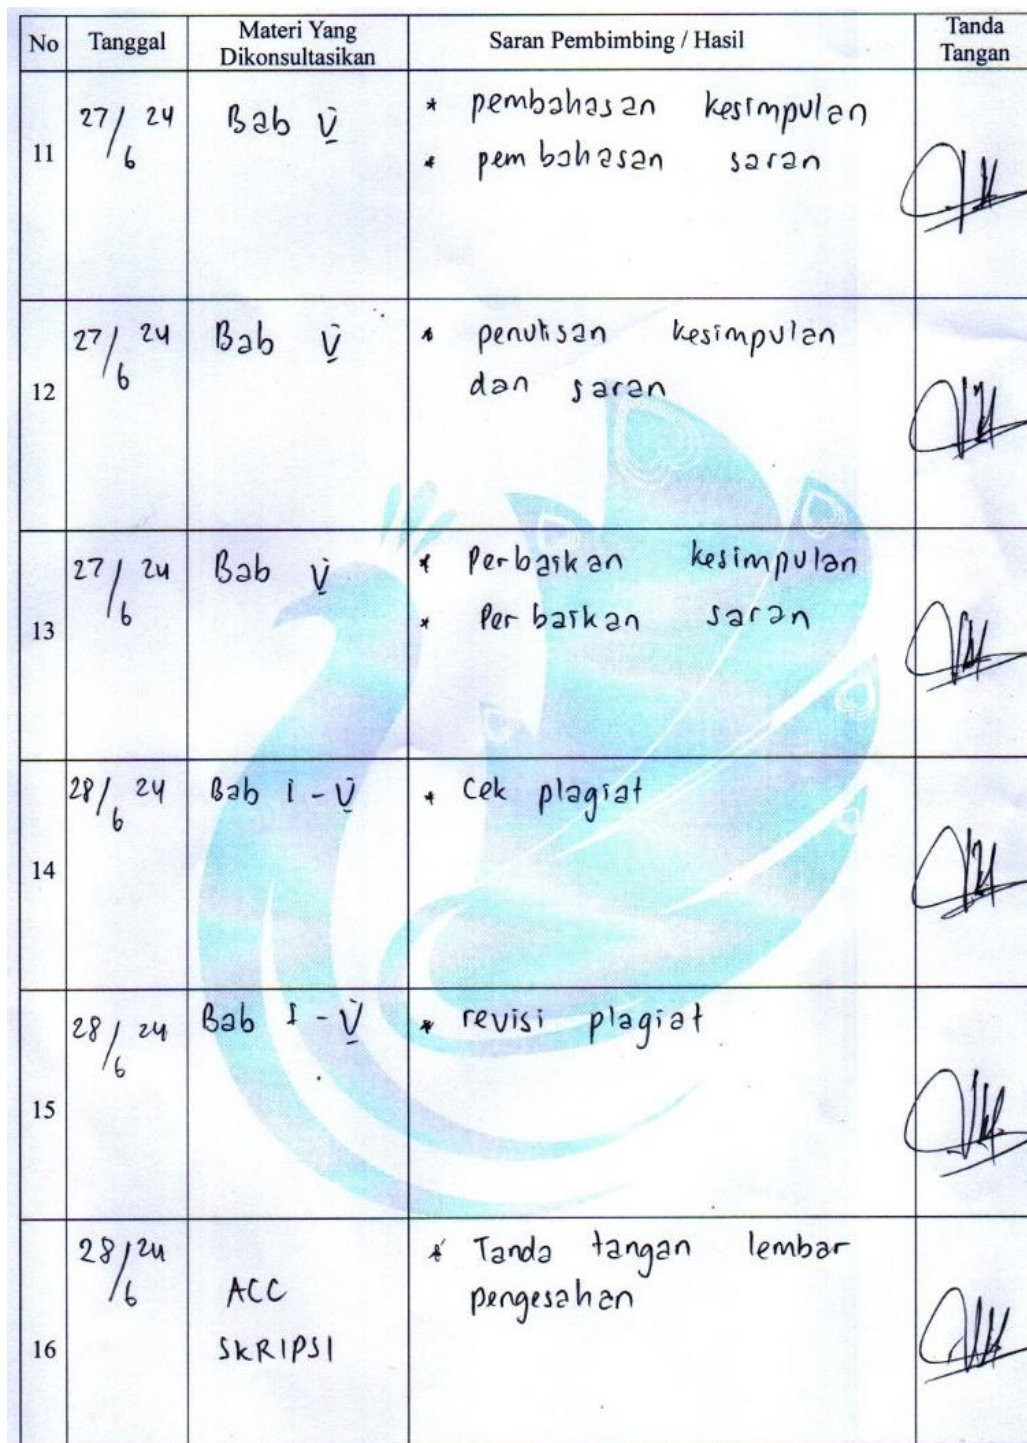 No Tanggal Materi Yang Dikonsultasikan Saran Pembimbing / Hasil Tanda Tangan
11 27/6 24 Bab V * pembahasan kesimpulan
* pembahasan saran
12 27/6 24 Bab V * penulisan kesimpulan
dan saran
13 27/6 24 Bab V * Perbaikan kesimpulan
* Perbaikan saran
14 28/6 24 Bab I - V * Cek plagiat
15 28/6 24 Bab I - V * revisi plagiat
16 28/6 24 ACC SKRIPSI * Tanda tangan lembar
pengesahan